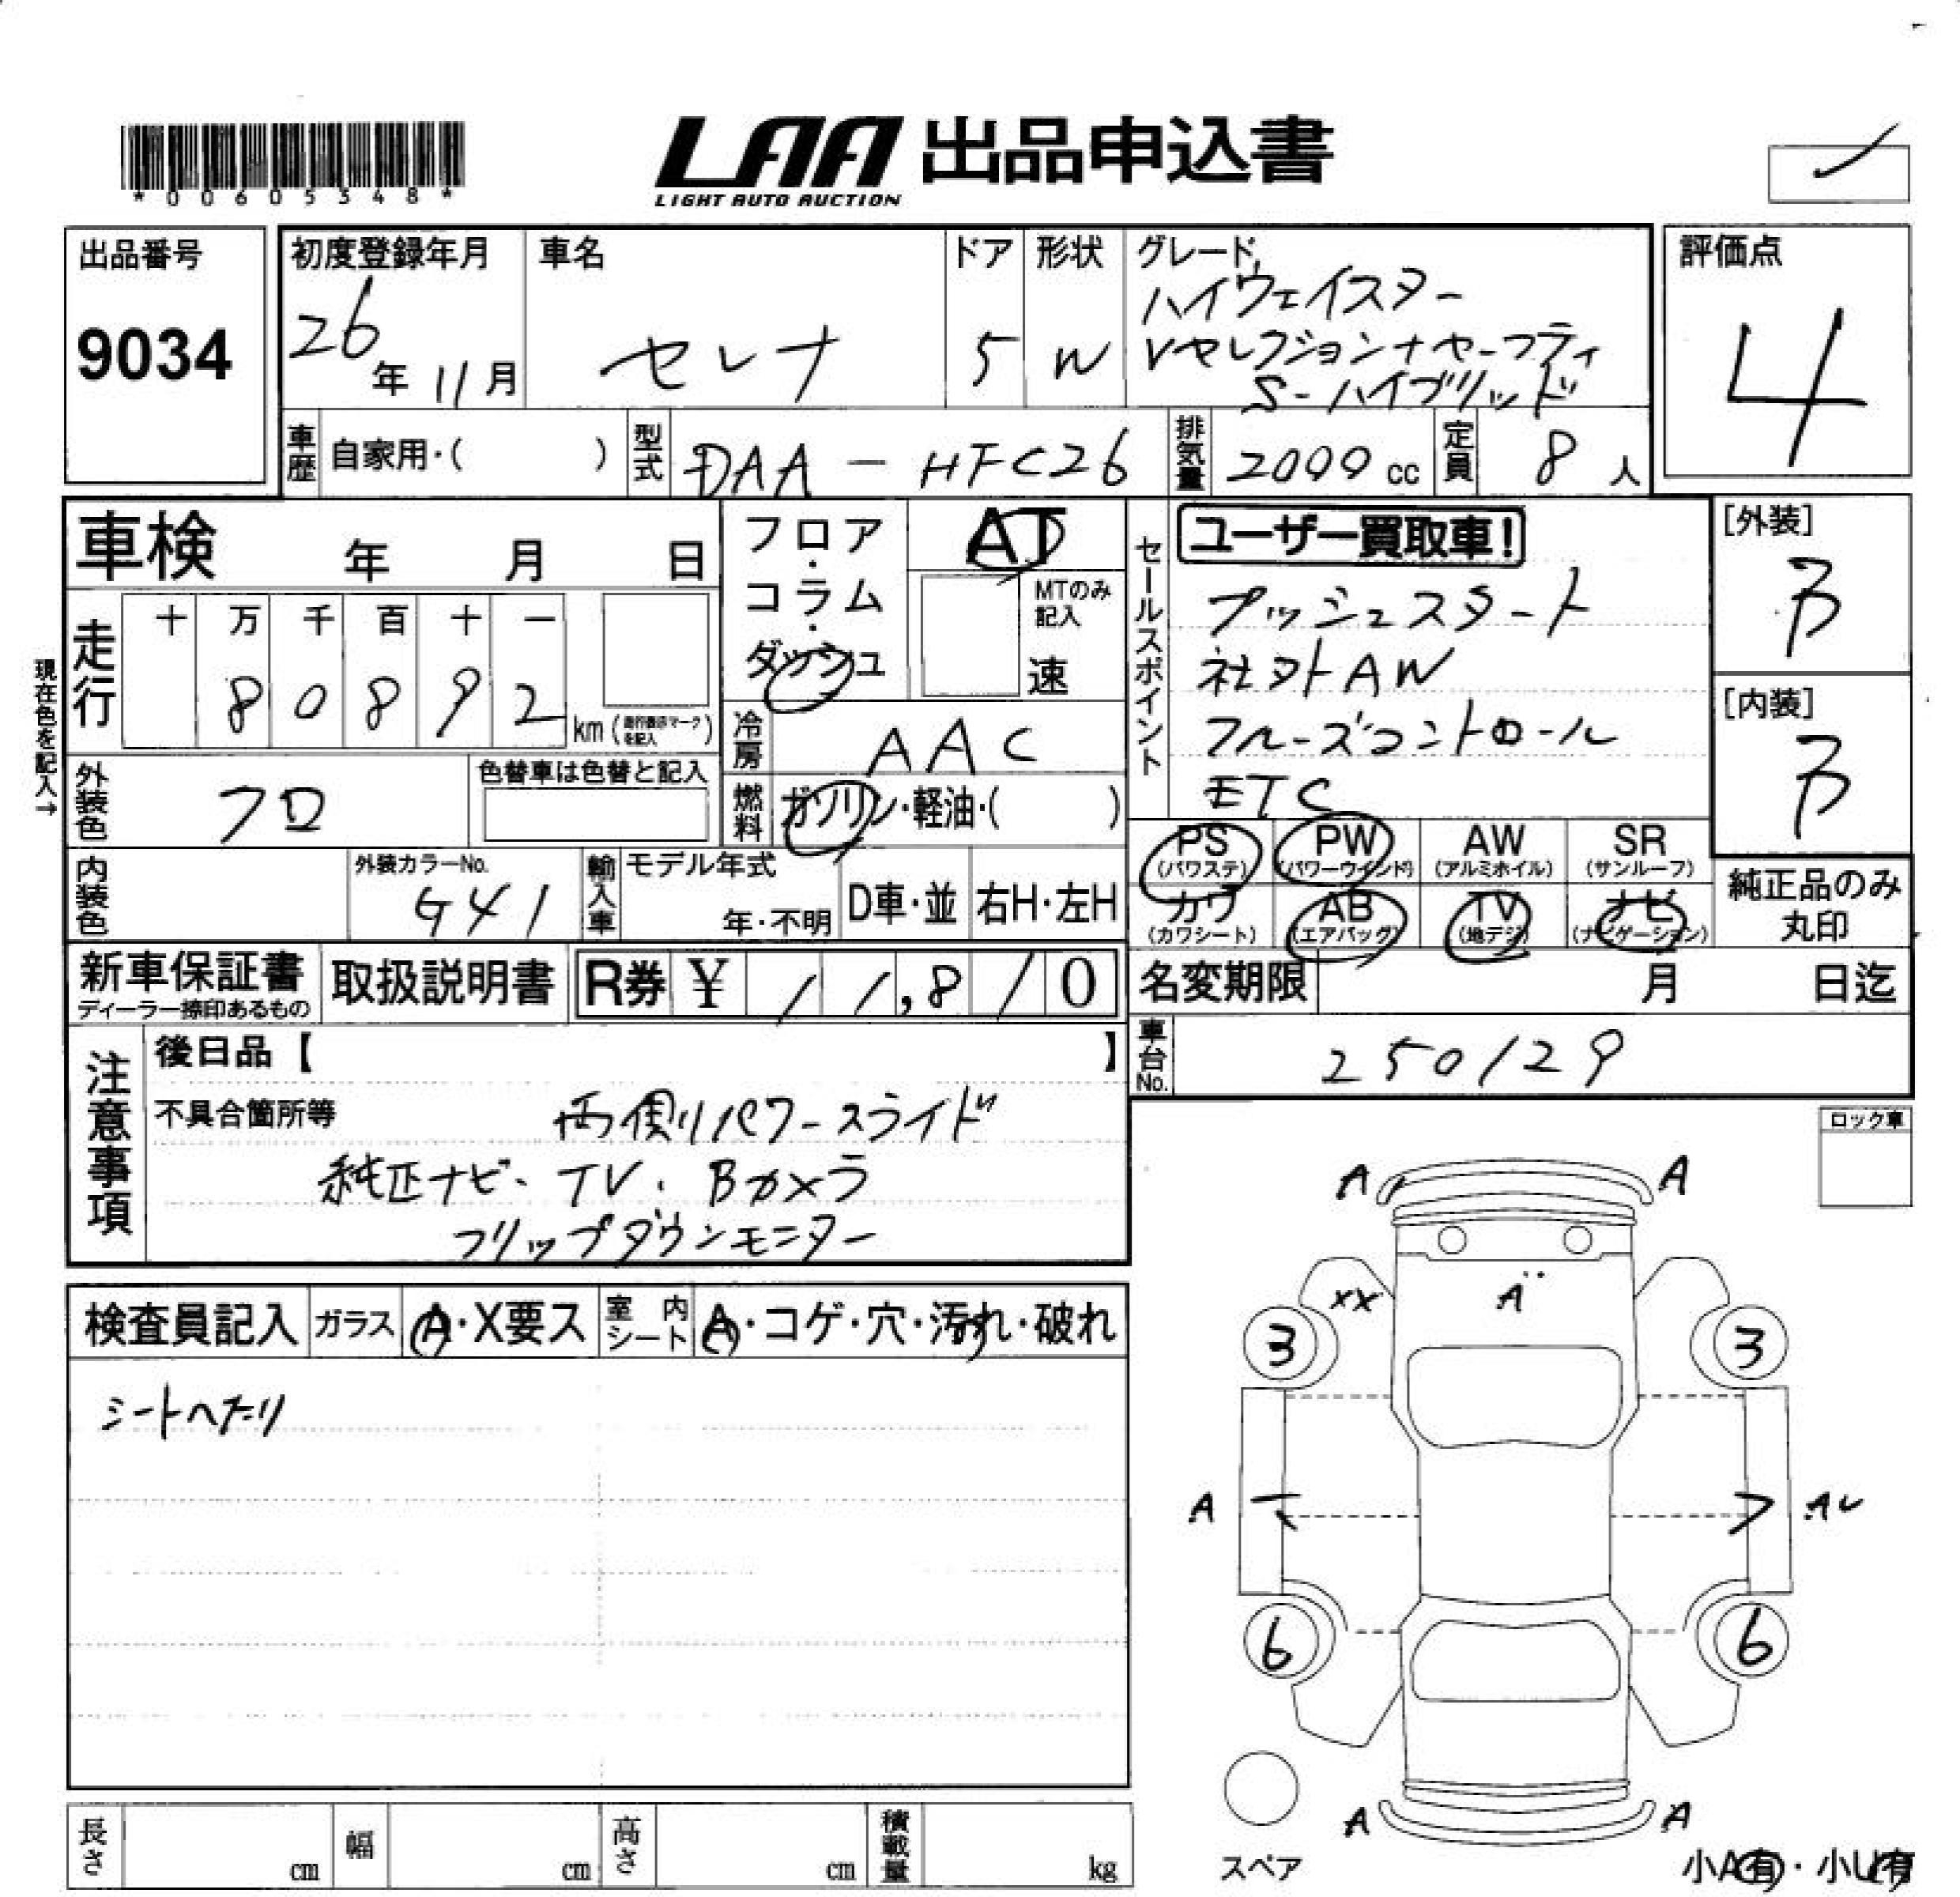 *00605348*
LAA 出品申込書
LIGHT AUTO AUCTION
出品番号
9034
初度登録年月
26年 11月
車名
セレナ
ドア
5
形状
W
グレード
ハイウェイスター
Vセレクション+セーフティ
S-ハイブリッド
評価点
4
車歴 自家用・( )
型式 DAA-HFC26
排気量 2000 cc
定員 8 人
車検 年 月 日
フロア・コラム・ダッシュ
AT
MTのみ記入
速
セールスポイント
ユーザー買取車!
プッシュスタート
社外AW
クルーズコントロール
ETC
[外装]
B
[内装]
B
現在色を記入→
走行
十 万 千 百 十 一
8 0 8 9 2 km (走行表示マークを記入)
冷房 AAC
外装色 クロ
色替車は色替と記入
燃料 ガソリン・軽油・( )
PS (パワステ) PW (パワーウインド) AW (アルミホイル) SR (サンルーフ)
カワ (カワシート) AB (エアバッグ) TV (地デジ) ナビ (ナビゲーション)
純正品のみ丸印
内装色
外装カラーNo.
G41
輸入車 モデル年式
年・不明
D車・並 右H・左H
新車保証書
ディーラー捺印あるもの
取扱説明書
R券 ¥ 11,810
名変期限 月 日迄
車台No. 250129
注意事項
後日品【 】
不具合箇所等
両側パワースライド
純正ナビ、TV、Bカメラ
フリップダウンモニター
ロック車
検査員記入 ガラス A・X要ス 室内シート A・コゲ・穴・汚れ・破れ
シートへたり
A A
XX A
3 3
A AU
6 6
A A
スペア
小A有・小U有
長さ cm 幅 cm 高さ cm 積載量 kg